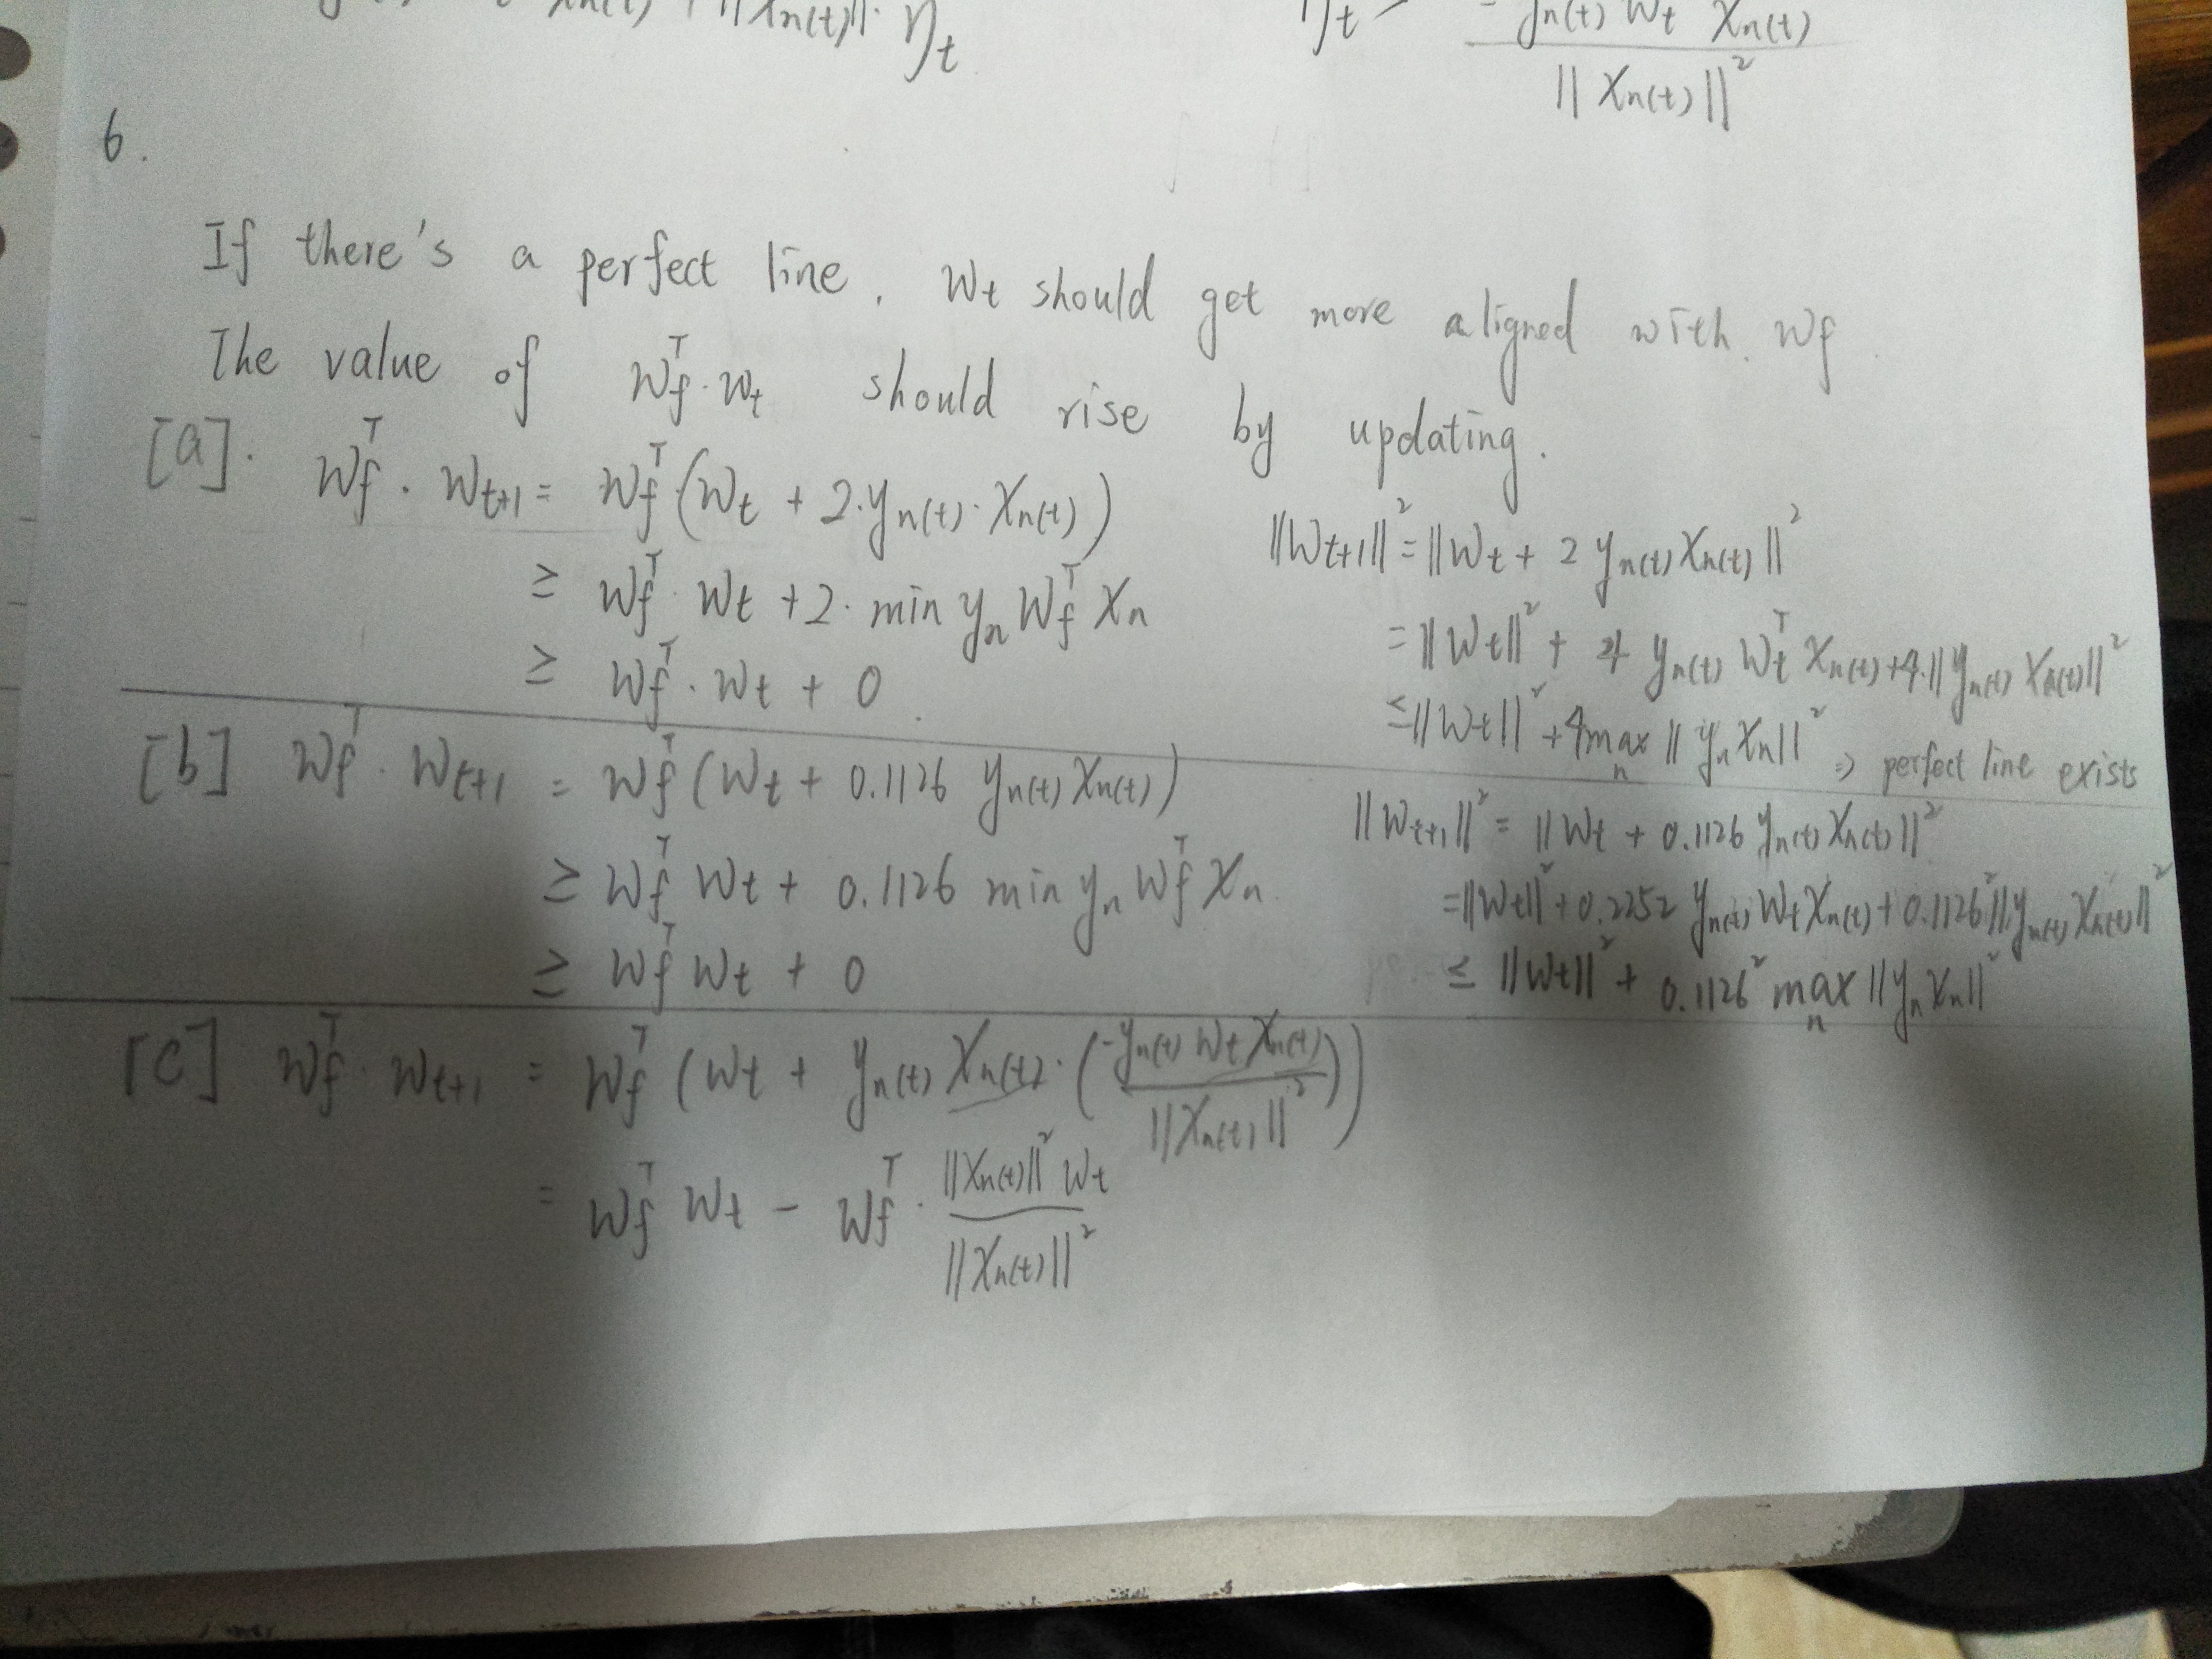 Xn(t) + ||Xn(t)||² · ηt
ηt = -yn(t) Wt Xn(t) / ||Xn(t)||²
6.
If there's a perfect line, Wt should get more aligned with Wf.
The value of Wf^T · Wt should rise by updating.
[a]. Wf^T · Wt+1 = Wf^T (Wt + 2·yn(t)·Xn(t))
≥ Wf^T · Wt + 2· min yn Wf^T Xn
≥ Wf^T · Wt + 0.
||Wt+1||² = ||Wt + 2 yn(t) Xn(t)||²
= ||Wt||² + 4 yn(t) Wt^T Xn(t) + 4·||yn(t) Xn(t)||²
≤ ||Wt||² + 4 max n ||yn Xn||² ⇒ perfect line exists
[b] Wf^T · Wt+1 = Wf^T (Wt + 0.1126 yn(t) Xn(t))
≥ Wf^T Wt + 0.1126 min yn Wf^T Xn
≥ Wf^T Wt + 0
||Wt+1||² = ||Wt + 0.1126 yn(t) Xn(t)||²
= ||Wt||² + 0.2252 yn(t) Wt Xn(t) + 0.1126² ||yn(t) Xn(t)||²
≤ ||Wt||² + 0.1126² max n ||yn Xn||²
[c] Wf^T · Wt+1 = Wf^T (Wt + yn(t) Xn(t) · (-yn(t) Wt Xn(t) / ||Xn(t)||²))
= Wf^T Wt - Wf^T · ||Xn(t)||² Wt / ||Xn(t)||²